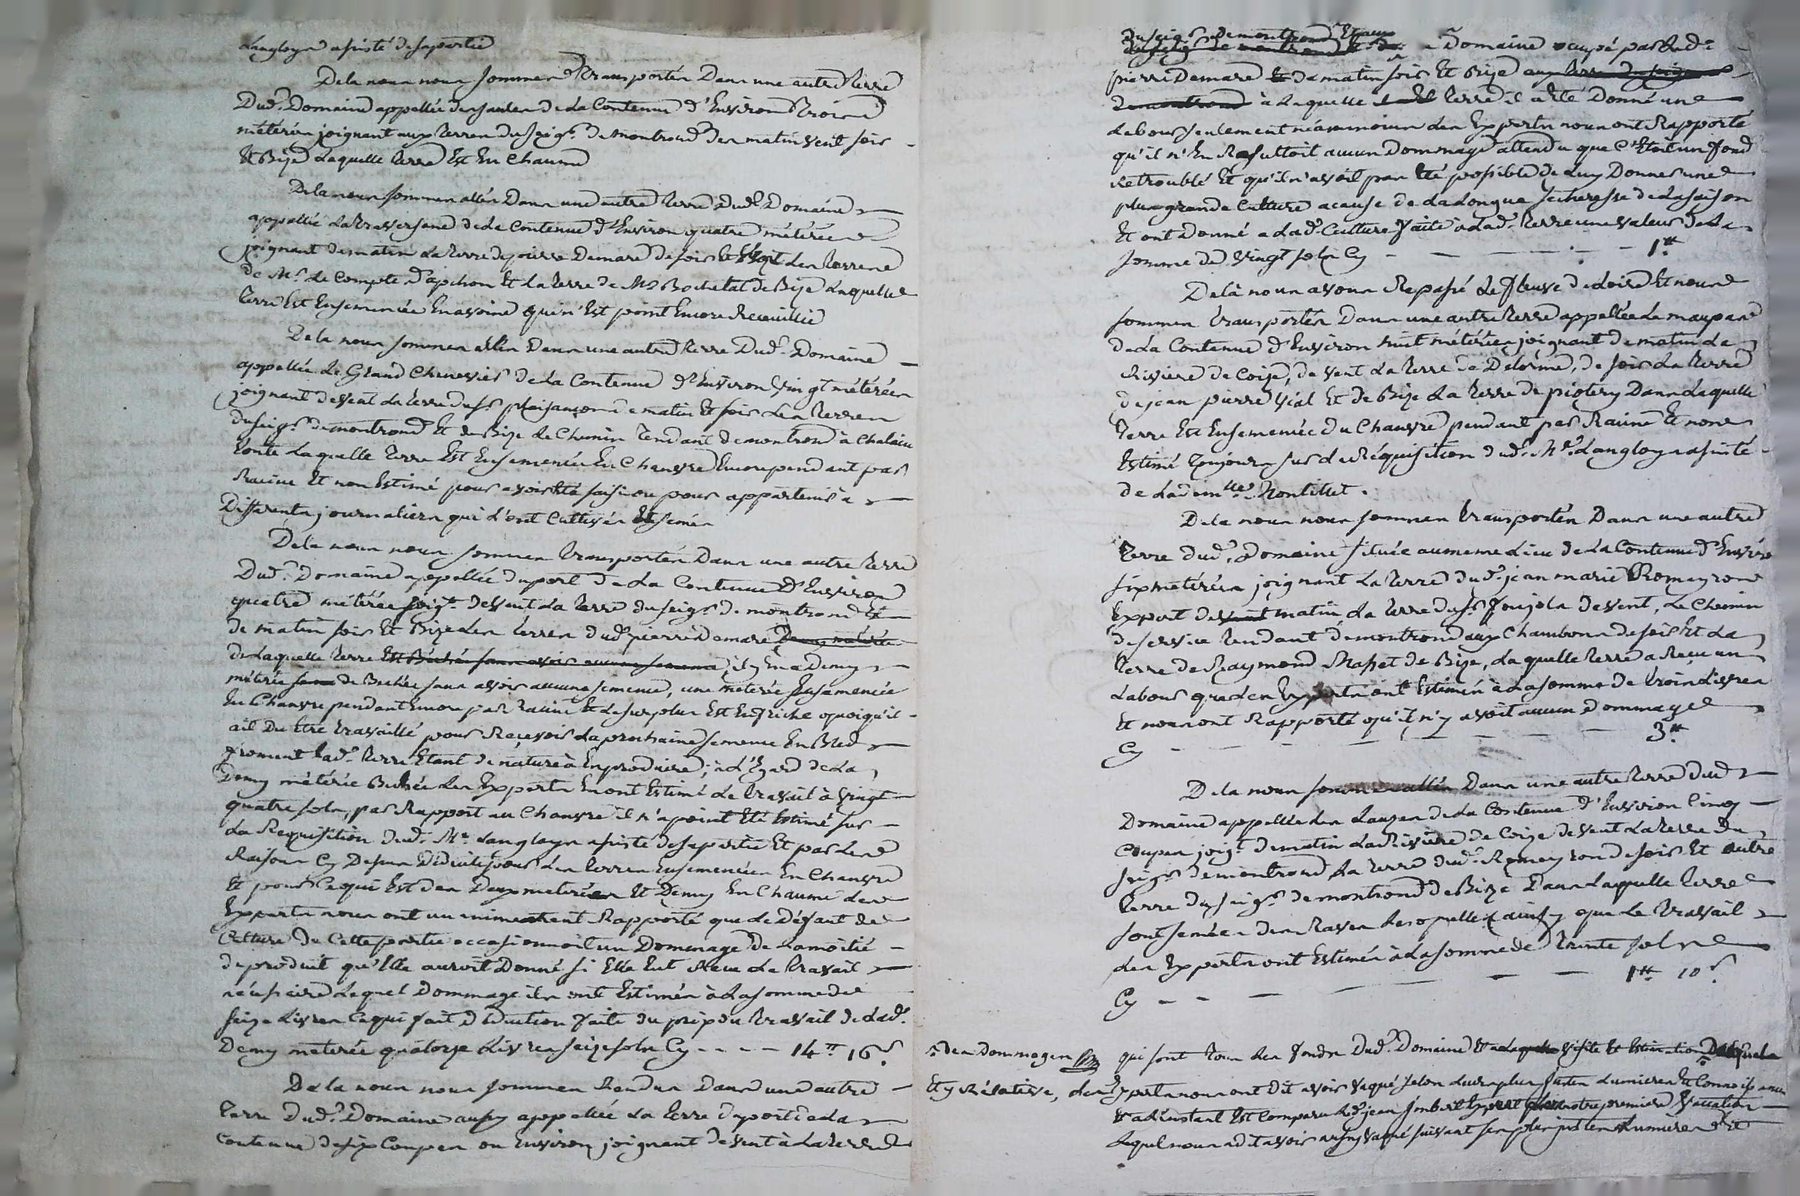 Langloys assisté de sa partie
De la nous nous sommes transportés Dans une autre terre
Dud. Domaine appellée des saules de la Contenue d'Environ trois
métérées joignant aux terres du seigr. de montrond des matin vent soir
Et Bize Laquelle terre Est En Chaume
De la nous sommes allés Dans une autre terre Dud. Domaine
appellée La traversane de la Contenue d'Environ quatre métérées
joignant de matin la terre de pierre Demare de soir et vent les terres
de Mr. Le Compte d'apchon Et la terre de Mr Bochetal de Bize Laquelle
terre Est Ensemencée En avoine qui n'Est point Encore Recueillie
De la nous sommes allés Dans une autre terre Dud. Domaine
appellée Le Grand Chenevier de la Contenue d'Environ vingt métérées
joignant de vent la terre du sr. plaisançon de matin Et soir Les terres
du seigr. de montrond Et de Bize Le Chemin tendant de montrond à Chalain
toute Laquelle terre Est Ensemencée En Chanvre Encore pendant par
Racine Et non Estimé pour avoir été saisi ou pour appartenir à
Differents journaliers qui l'ont Cultivés Et semés
De la nous nous sommes transportés Dans une autre terre
Dud. Domaine appellée du port de la Contenue d'Environ
quatre métérées joigt. de vent la terre du seigr. de montrond Et
de matin soir Et Bize Les terres dud. pierre demare Demy métérée
de Laquelle terre Est Bechée sans avoir aucune semence il y En a Demy
métérée sans de Bechée sans avoir aucune semence, une métérée Ensemencée
En Chanvre pendant Encore par Racine Et le surplus Est En friche quoiqu'il
ait Du Etre travaillé pour Recevoir la prochaine semence En Bled
froment Lad. terre Etant de nature à En produire; à L'Egard de la
Demy métérée Bechée Les Experts En ont Estimé Le travail à vingt
quatre sols, par Rapport au Chanvre il n'a point Eté Estimé sur
La Requisition dud. Me. Langloys assisté de sa partie Et par les
Raisons Cy Dessus Déduites pour Les terres Ensemencées En Chanvre
Et pour Ce qui Est des Deux metérées Et Demy En Chaume les
Experts nous ont unimement Rapporté que Le Défaut de
Culture de Cette partie occasionnoit un Dommage de La moitié
de produit qu'Elle auroit Donné si Elle Eut Recu Le travail
nécessaire Lequel Dommage ils ont Estimés à La somme de
seize Livres Ce qui fait déduction faite du prix du travail de Lad.
Demy métérée quatorze Livres seize sols Cy - - - - 14tt 16s
De la nous nous sommes Rendus Dans une autre
terre Dud. Domaine aussy appellée La terre du port de la
Contenue de six Coupes ou Environ joignant de vent à La terre
du seigr. de montrond Et aux
du seigr. de montrond Domaine ocupé par Led.
pierre Demare de matin soir Et Bize aux terres du seigr.
de montrond à Laquelle terre il a Eté Donné une
Labour seulement néanmoins Les Experts nous ont Rapporté
qu'il n'En Resultoit aucun Dommage attendu que C'Etoit un fond
Retroublé Et qu'il n'avoit pas Eté possible de Luy Donner une
plus grande Culture a cause de La Longue secheresse de La saison
Et ont Donné a Lad. Culture faite à Lad. terre une valeur de La
somme de vingt sols Cy - - - - - - 1tt
De là nous avons Repassé Le fleuve de Loire Et nous
sommes transportés Dans une autre terre appellée La maupare
de La Contenue d'Environ huit métérées joignant de matin La
Riviere de Coize, de vent La terre de Delorme, de soir La terre
de jean pierre Vial Et de Bize La terre de piotery Dans Laquelle
terre Est Ensemencée Du Chanvre pendant par Racine Et non
Estimé toujours sur La Réquisition dud. Me. Langloys assisté
de La demlle. Montillet.
De la nous nous sommes transportés Dans une autre
terre dud. Domaine située au meme Lieu de La Contenue d'Environ
six métérées joignant La terre dud. jean marie Romeyron
Expert de vent matin, La terre du sr. Joujols de vent, Le Chemin
de service tendant de montrond aux Chambons de soir Et La
terre de Raymond Masset de Bize, Laquelle terre a Reçu un
Labour que Les Experts ont Estimés à La somme de trois Livres
Et nous ont Rapporté qu'il n'y avoit aucun dommage
Cy - - - - - - - - 3tt
De la nous sommes allés Dans une autre terre Dud
Domaine appellée Les Lauzes de La Contenue d'Environ Cinq
Coupes joigt. de matin La Rivière de Coize de vent La terre Du
seigr. de montrond La terre dud. Romeyron de soir Et autre
terre du seigr. de montrond de Bize Dans Laquelle terre
sont semées des Raves Lesquelles ainsy que Le travail
Les Experts ont Estimés à La somme de trente sols
Cy - - - - - - 1tt 10s
qui sont tous Les fonds Dud. Domaine Et a Laquelle visite Et Estimation Desquels
= des Dommages
Et y Rélative, Les Experts nous ont dit avoir vaqué selon Leurs plus justes Lumieres Et Connoissances
Et a L'instant Est Comparu Led. jean Imbert Expert notre premiere vacation
Lequel nous a dit avoir aussy vaqué suivant ses plus justes Lumieres Et